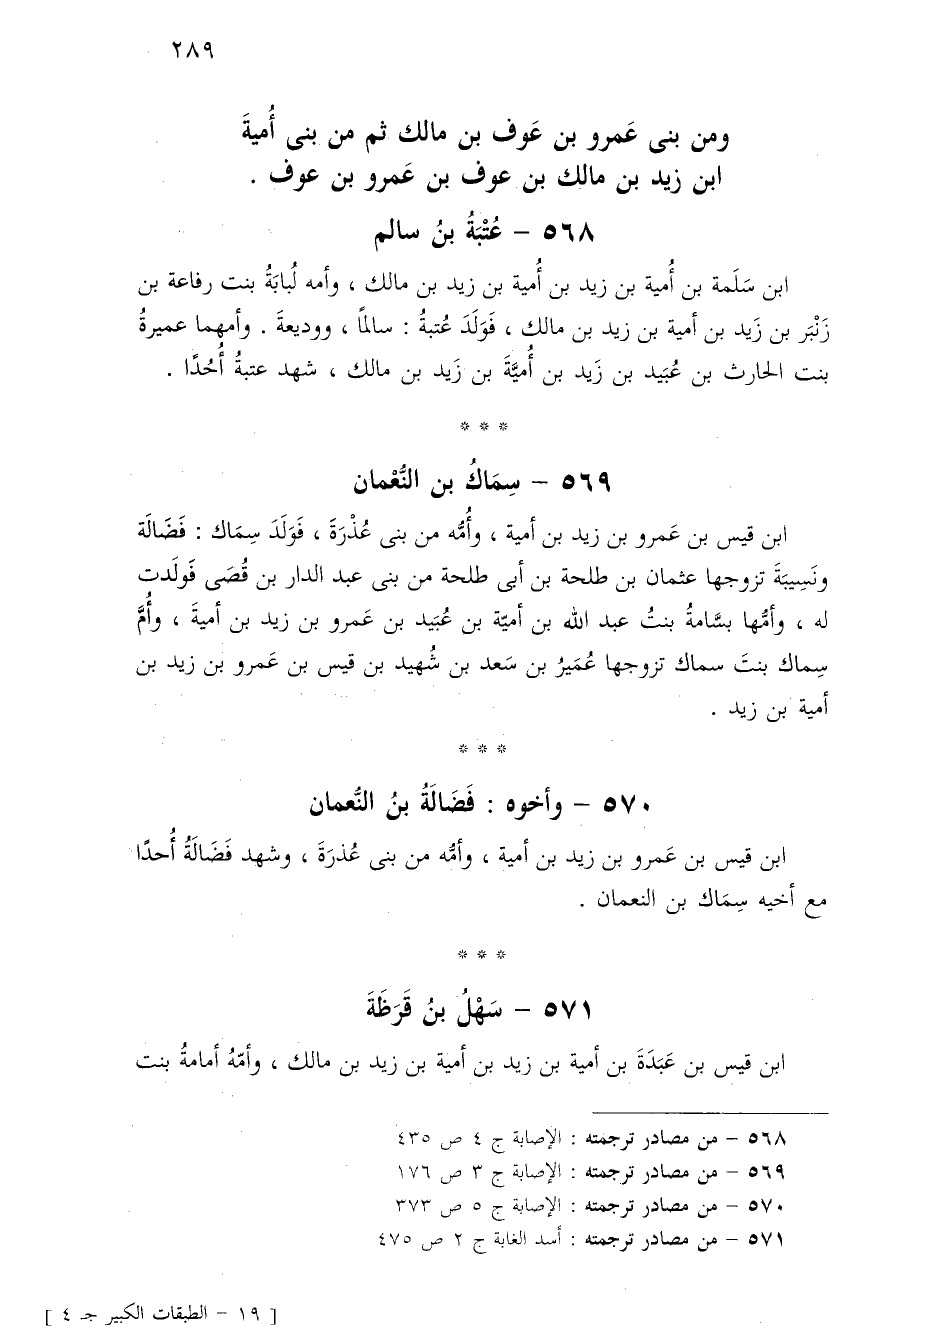 ٢٨٩
ومن بنى عَمرو بن عَوف بن مالك ثم من بنى أُميةَ
ابن زيد بن مالك بن عوف بن عَمرو بن عوف .
٥٦٨ – عُتْبَةُ بنُ سالم
ابن سَلَمة بن أُمية بن زيد بن أُمية بن زيد بن مالك ، وأمه لُبابَةُ بنت رفاعة بن
زَنْبَر بن زَيد بن أمية بن زيد بن مالك ، فَوَلَدَ عُتبةُ : سالمًا ، ووديعةَ . وأمهما عميرةُ
بنت الحارث بن عُبَيد بن زَيد بن أُميَّةَ بن زَيد بن مالك ، شهد عتبةُ أُحُدًا .
* * *
٥٦٩ – سِمَاكُ بن النُّعْمان
ابن قيس بن عَمرو بن زيد بن أمية ، وأُمُّه من بنى عُذْرَةَ ، فَوَلَدَ سِمَاك : فَضَالَة
ونَسِيبَةَ تزوجها عثمان بن طلحة بن أبى طلحة من بنى عبد الدار بن قُصَى فَولَدت
له ، وأمُّها بسَّامةُ بنتُ عبد الله بن أميّة بن عُبَيد بن عَمرو بن زيد بن أميةَ ، وأُمَّ
سِماك بنتَ سماك تزوجها عُمَيرُ بن سَعد بن شُهيد بن قيس بن عَمرو بن زيد بن
أمية بن زيد .
* * *
٥٧٠ – وأخوه : فَضَالَةُ بنُ النُّعمان
ابن قيس بن عَمرو بن زيد بن أمية ، وأمُّه من بنى عُذرَةَ ، وشهد فَضَالَةُ أُحدًا
مع أخيه سِمَاك بن النعمان .
* * *
٥٧١ – سَهْلُ بنُ قَرَظَةَ
ابن قيس بن عَبَدَةَ بن أمية بن زيد بن أمية بن زيد بن مالك ، وأمّهُ أمامةُ بنت
٥٦٨ – من مصادر ترجمته : الإصابة ج ٤ ص ٤٣٥
٥٦٩ – من مصادر ترجمته : الإصابة ج ٣ ص ١٧٦
٥٧٠ – من مصادر ترجمته : الإصابة ج ٥ ص ٣٧٣
٥٧١ – من مصادر ترجمته : أسد الغابة ج ٢ ص ٤٧٥
[ ١٩ – الطبقات الكبير جـ ٤ ]